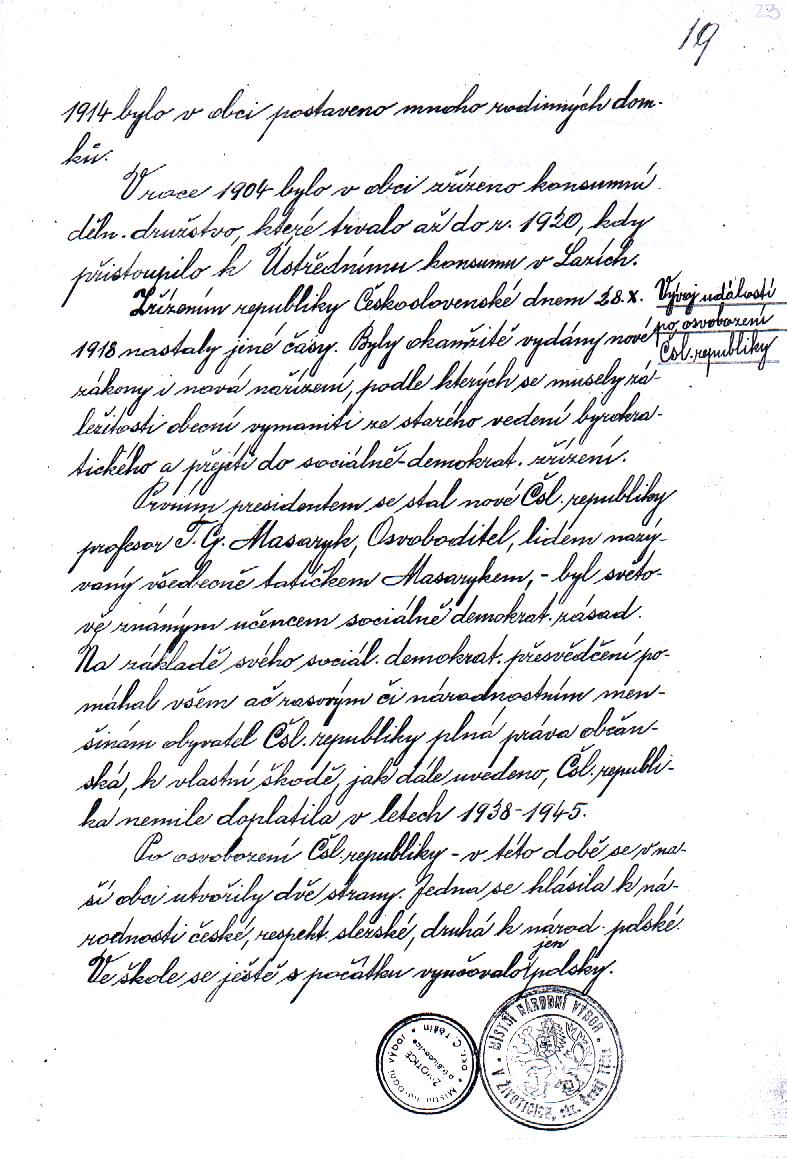 23
19
1914 bylo v obci postaveno mnoho rodinných dom-
ků.
V roce 1904 bylo v obci zřízeno konsumní
děln. družstvo, které trvalo až do r. 1920, kdy
přistoupilo k Ústřednímu konsumu v Lazích.
Zřízením republiky Československé dnem 28.X.
Vývoj událostí
po osvobození
Čsl. republiky
1918 nastaly jiné časy. Byly okamžitě vydány nové
zákony i nová nařízení, podle kterých se musely zá-
ležitosti obecní vymaniti ze starého vedení byrokra-
tického a přejíti do sociálně-demokrat. zřízení.
Prvním presidentem se stal nové Čsl. republiky
profesor T. G. Masaryk, Osvoboditel, lidem nazý-
vaný všeobecně tatíčkem Masarykem, - byl světo-
vě známým učencem sociálně demokrat. zásad.
Na základě svého sociál. demokrat. přesvědčení po-
máhal všem ač rasovým či národnostním men-
šinám obyvatel Čsl. republiky plná práva občan-
ská, k vlastní škodě, jak dále uvedeno, Čsl. republi-
ka nemile doplatila v letech 1938-1945.
Po osvobození Čsl. republiky - v této době se v na-
ší obci utvořily dvě strany. Jedna se hlásila k ná-
rodnosti české, respekt. slezské, druhá k národ. polské.
Ve škole se ještě s počátku vyučovalo jen polsky.
MÍSTNÍ NÁRODNÍ VÝBOR
V ŽIVOTICÍCH, okr. Český Těšín
MÍSTNÍ NÁRODNÍ
ŽIVOTICE
Okr. Č. Těšín